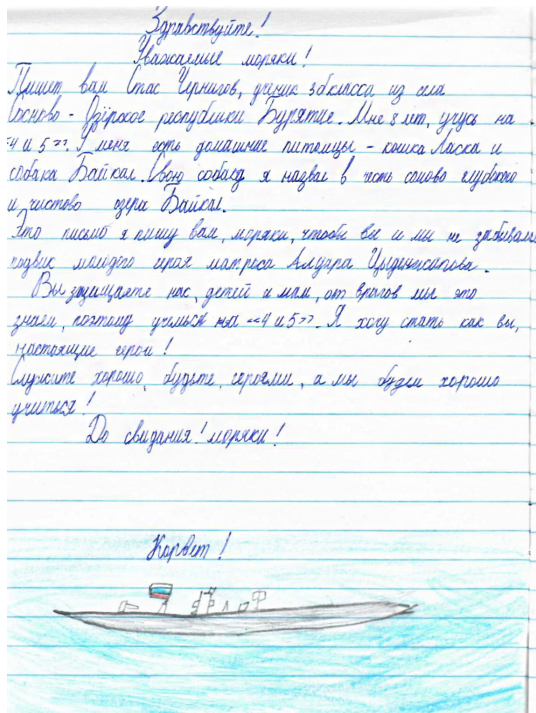 Здравствуйте!
Уважаемые моряки!
Пишет вам Стас Чернигов, ученик 3б класса из села
Сосново-Озёрское республики Бурятие. Мне 8 лет, учусь на
«4 и 5». У меня есть домашние питомцы - кошка Ласка и
собака Байкал. Свою собаку я назвал в честь самово глубокого
и чистово озера Байкал.
Это письмо я пишу вам, моряки, чтобы вы и мы не забывали
подвиг молодого героя матроса Алдара Цыденжапова.
Вы защищаете нас, детей и мам, от врагов мы это
знаем, поэтому учимься на «4 и 5». Я хочу стать как вы,
настоящие герои!
Служите хорошо, будьте героями, а мы будем хорошо
учиться!
До свидания! моряки!
Корвет!